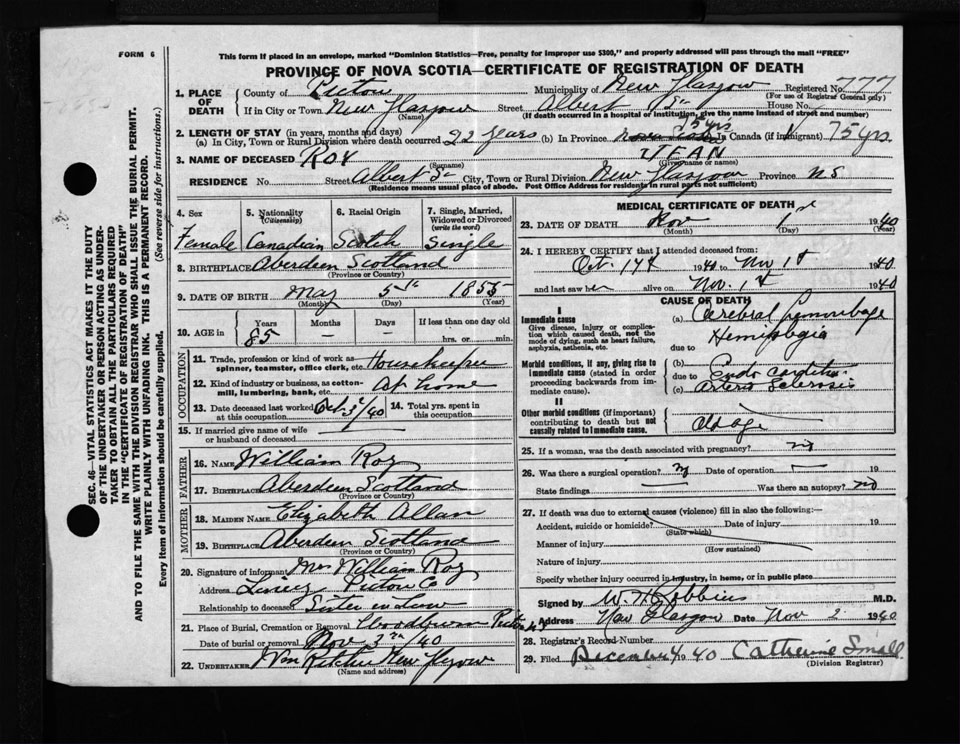 FORM 6
This form if placed in an envelope, marked "Dominion Statistics—Free, penalty for improper use $300," and properly addressed will pass through the mail "FREE"
PROVINCE OF NOVA SCOTIA—CERTIFICATE OF REGISTRATION OF DEATH
1. PLACE OF DEATH County of Pictou Municipality of New Glasgow Registered No. 777
(For use of Registrar General only)
If in City or Town New Glasgow Street Albert St House No.
(Name) (If death occurred in a hospital or institution, give the name instead of street and number)
2. LENGTH OF STAY (in years, months and days)
(a) In City, Town or Rural Division where death occurred 22 years (b) In Province Nova Scotia 75 yrs In Canada (if immigrant) 75 yrs.
3. NAME OF DECEASED ROY JEAN
(Surname) (Given name or names)
RESIDENCE No. Street Albert St City, Town or Rural Division New Glasgow Province NS
(Residence means usual place of abode. Post Office Address for residents in rural parts not sufficient)
SEC. 46— VITAL STATISTICS ACT MAKES IT THE DUTY
OF THE UNDERTAKER OR PERSON ACTING AS UNDERTAKER TO OBTAIN ALL THE PARTICULARS REQUIRED
IN THE "CERTIFICATE OF REGISTRATION OF DEATH"
AND TO FILE THE SAME WITH THE DIVISION REGISTRAR WHO SHALL ISSUE THE BURIAL PERMIT.
WRITE PLAINLY WITH UNFADING INK. THIS IS A PERMANENT RECORD.
Every item of information should be carefully supplied. (See reverse side for instructions.)
4. Sex 5. Nationality (Citizenship) 6. Racial Origin 7. Single, Married, Widowed or Divorced (write the word)
Female Canadian Scotch Single
8. BIRTHPLACE Aberdeen Scotland
(Province or Country)
9. DATE OF BIRTH May 5th 1855
(Month) (Day) (Year)
10. AGE in Years Months Days If less than one day old
85 hrs. or min.
OCCUPATION
11. Trade, profession or kind of work as spinner, teamster, office clerk, etc. Housekeeper
12. Kind of industry or business, as cotton-mill, lumbering, bank, etc. At home
13. Date deceased last worked at this occupation Oct. 3/40 14. Total yrs. spent in this occupation
15. If married give name of wife or husband of deceased
FATHER
16. NAME William Roy
17. BIRTHPLACE Aberdeen Scotland
(Province or Country)
MOTHER
18. MAIDEN NAME Elizabeth Allan
19. BIRTHPLACE Aberdeen Scotland
(Province or Country)
20. Signature of informant Mrs William Roy
Address Pictou Co
Relationship to deceased Sister in Law
21. Place of Burial, Cremation or Removal Woodburn Pictou
Date of burial or removal Nov 3rd /40
22. UNDERTAKER New Glasgow
(Name and address)
MEDICAL CERTIFICATE OF DEATH
23. DATE OF DEATH Nov 1st 1940
(Month) (Day) (Year)
24. I HEREBY CERTIFY that I attended deceased from:
Oct. 17th 1940 to Nov 1st 1940
and last saw her alive on Nov. 1st 1940
CAUSE OF DEATH
I
Immediate cause
Give disease, injury or complication which caused death, not the mode of dying, such as heart failure, asphyxia, asthenia, etc.
(a) Cerebral hemorrhage
Hemiplegia
due to
Morbid conditions, if any, giving rise to immediate cause (stated in order proceeding backwards from immediate cause).
(b) Endo carditis
due to
(c) Arterio Sclerosis
II
Other morbid conditions (if important) contributing to death but not causally related to immediate cause.
Old age
25. If a woman, was the death associated with pregnancy? no
26. Was there a surgical operation? no Date of operation 19
State findings Was there an autopsy? no
27. If death was due to external causes (violence) fill in also the following:—
Accident, suicide or homicide? Date of injury 19
(State which)
Manner of injury
(How sustained)
Nature of injury
Specify whether injury occurred in industry, in home, or in public place
Signed by M.D.
Address New Glasgow Date Nov 2 1940
28. Registrar's Record Number
29. Filed December 1940 Catherine Small
(Division Registrar)